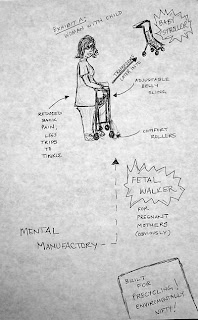 EXHIBIT A:
WOMAN WITH CHILD
BABY
STROLLER
TRANSITIONS
INTO
ADJUSTABLE
BELLY
SLING
REDUCED
BACK
PAIN,
LESS
TRIPS
TO
TINKLE
COMFORT
ROLLERS
FETAL
WALKER
FOR
PREGNANT
MOTHERS
(OBVIOUSLY)
MENTAL
MANUFACTORY
BUILT
FOR
PRECYCLING!
ENVIRONMENTALLY
NIFTY!